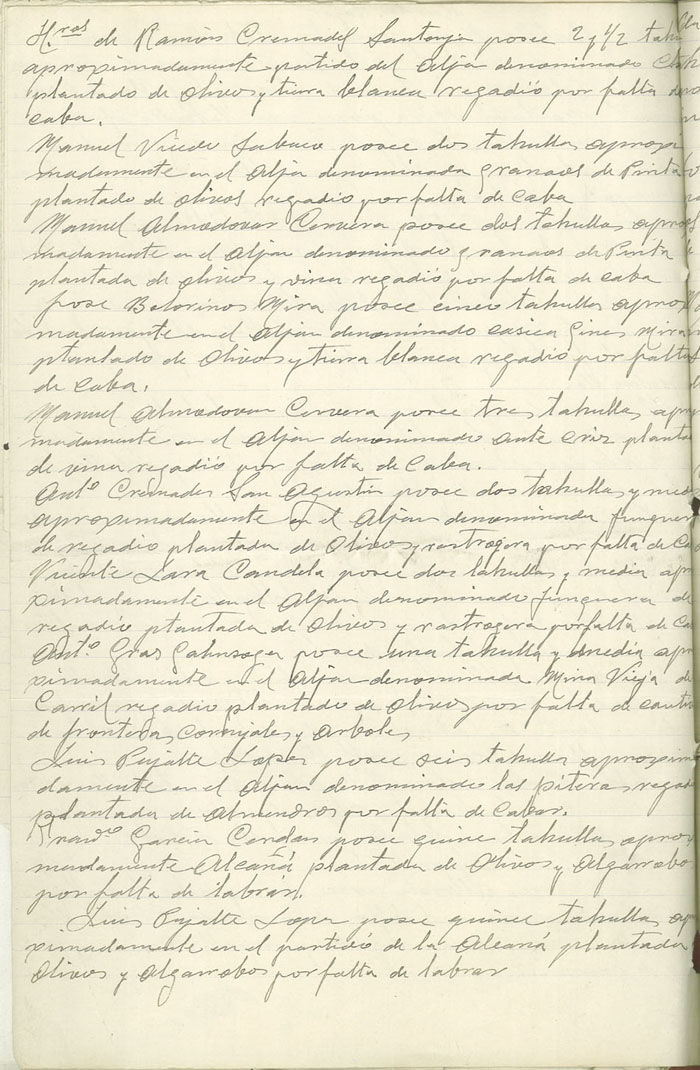 H.ros de Ramón Cremades Santonja posee 2 y 1/2 tahu
aproximadamente partido del Aljan denominado
plantado de olivos y tierra blanca regadio por falta de
caba.
Manuel Vicedo posee dos tahullas aproxi
madamente en el Aljan denominada granaos de Pinta
plantado de olivos regadio por falta de Caba
Manuel Almodovar Cervera posee dos tahullas aproxi
madamente en el Aljan denominado granaos de Pinta
plantada de olivos y vina regadio por falta de caba
Jose Belorinos Mira posee cinco tahullas aprox
madamente en el Aljan denominado caseca Gines Mira
plantado de Olivos y tierra blanca regadio por falta
de Caba.
Manuel Almodovar Cervera posee tres tahullas apro
madamente en el Aljan denominado ante criz planta
de vina regadio por falta de Caba.
Antº Cremades San Agustin posee dos tahullas y med
aproximadamente en el Aljan denominada Junquer
de regadio plantada de Olivos y rastrogera por falta de Ca
Vicente Lara Candela posee dos tahullas y media apr
ximadamente en el Aljan denominado Junquera de
regadio plantada de Olivos y rastrogera por falta de Ca
Antº. Gras posee una tahulla y media apr
ximadamente en el Aljan denominada Mina Vieja de
Carril regadio plantado de olivos por falta de
de fronteras, cornijales y arboles
Luis Pujalte Lopez posee seis tahulla aproxim
damente en el Aljan denominado las piteras rega
plantada de Almendros por falta de Cabar.
Garcia posee quince tahullas aprox
madamente Alcaná plantada de Olivos y Algarrobo
por falta de labrar.
Luis Pujalte Lopez posee quince tahullas ap
ximadamente en el partido de la Alcaná plantada
Olivos y Algarrobos por falta de labrar